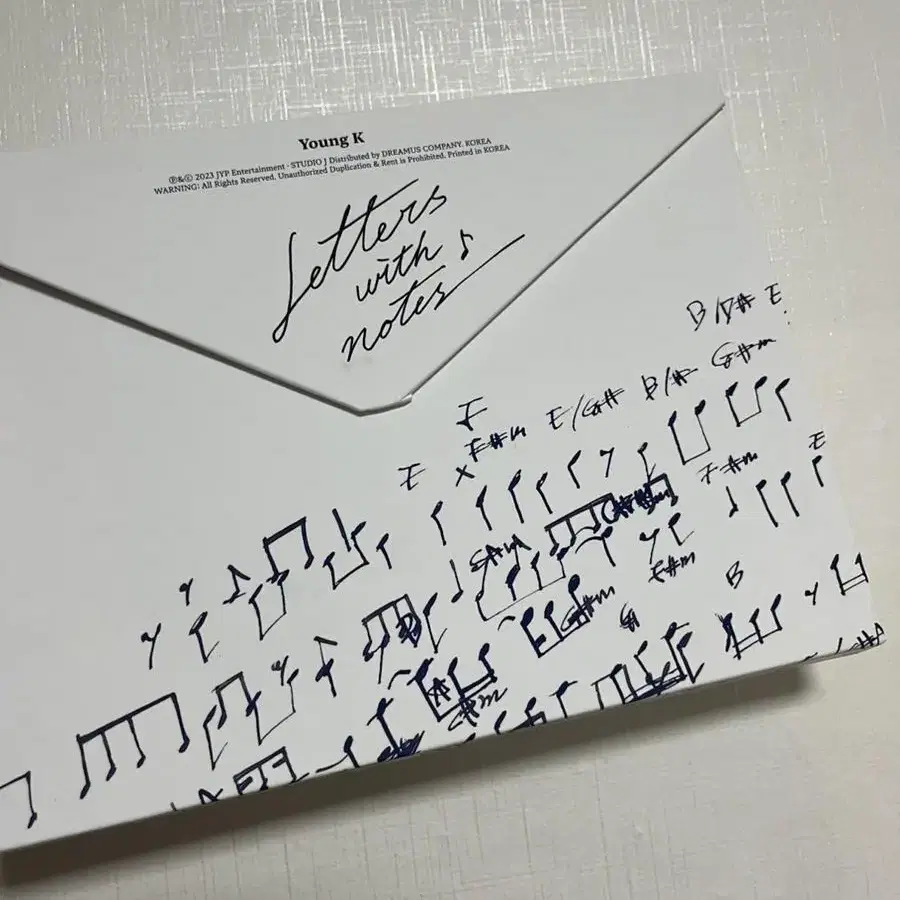 Young K
℗&© 2023 JYP Entertainment · STUDIO J Distributed by DREAMUS COMPANY. KOREA
WARNING: All Rights Reserved. Unauthorized Duplication & Rent is Prohibited. Printed in KOREA
Letters
with
notes
B/D# E
E F#m E/G# B/# G#m
F#m E
G#m F#m B
C#m